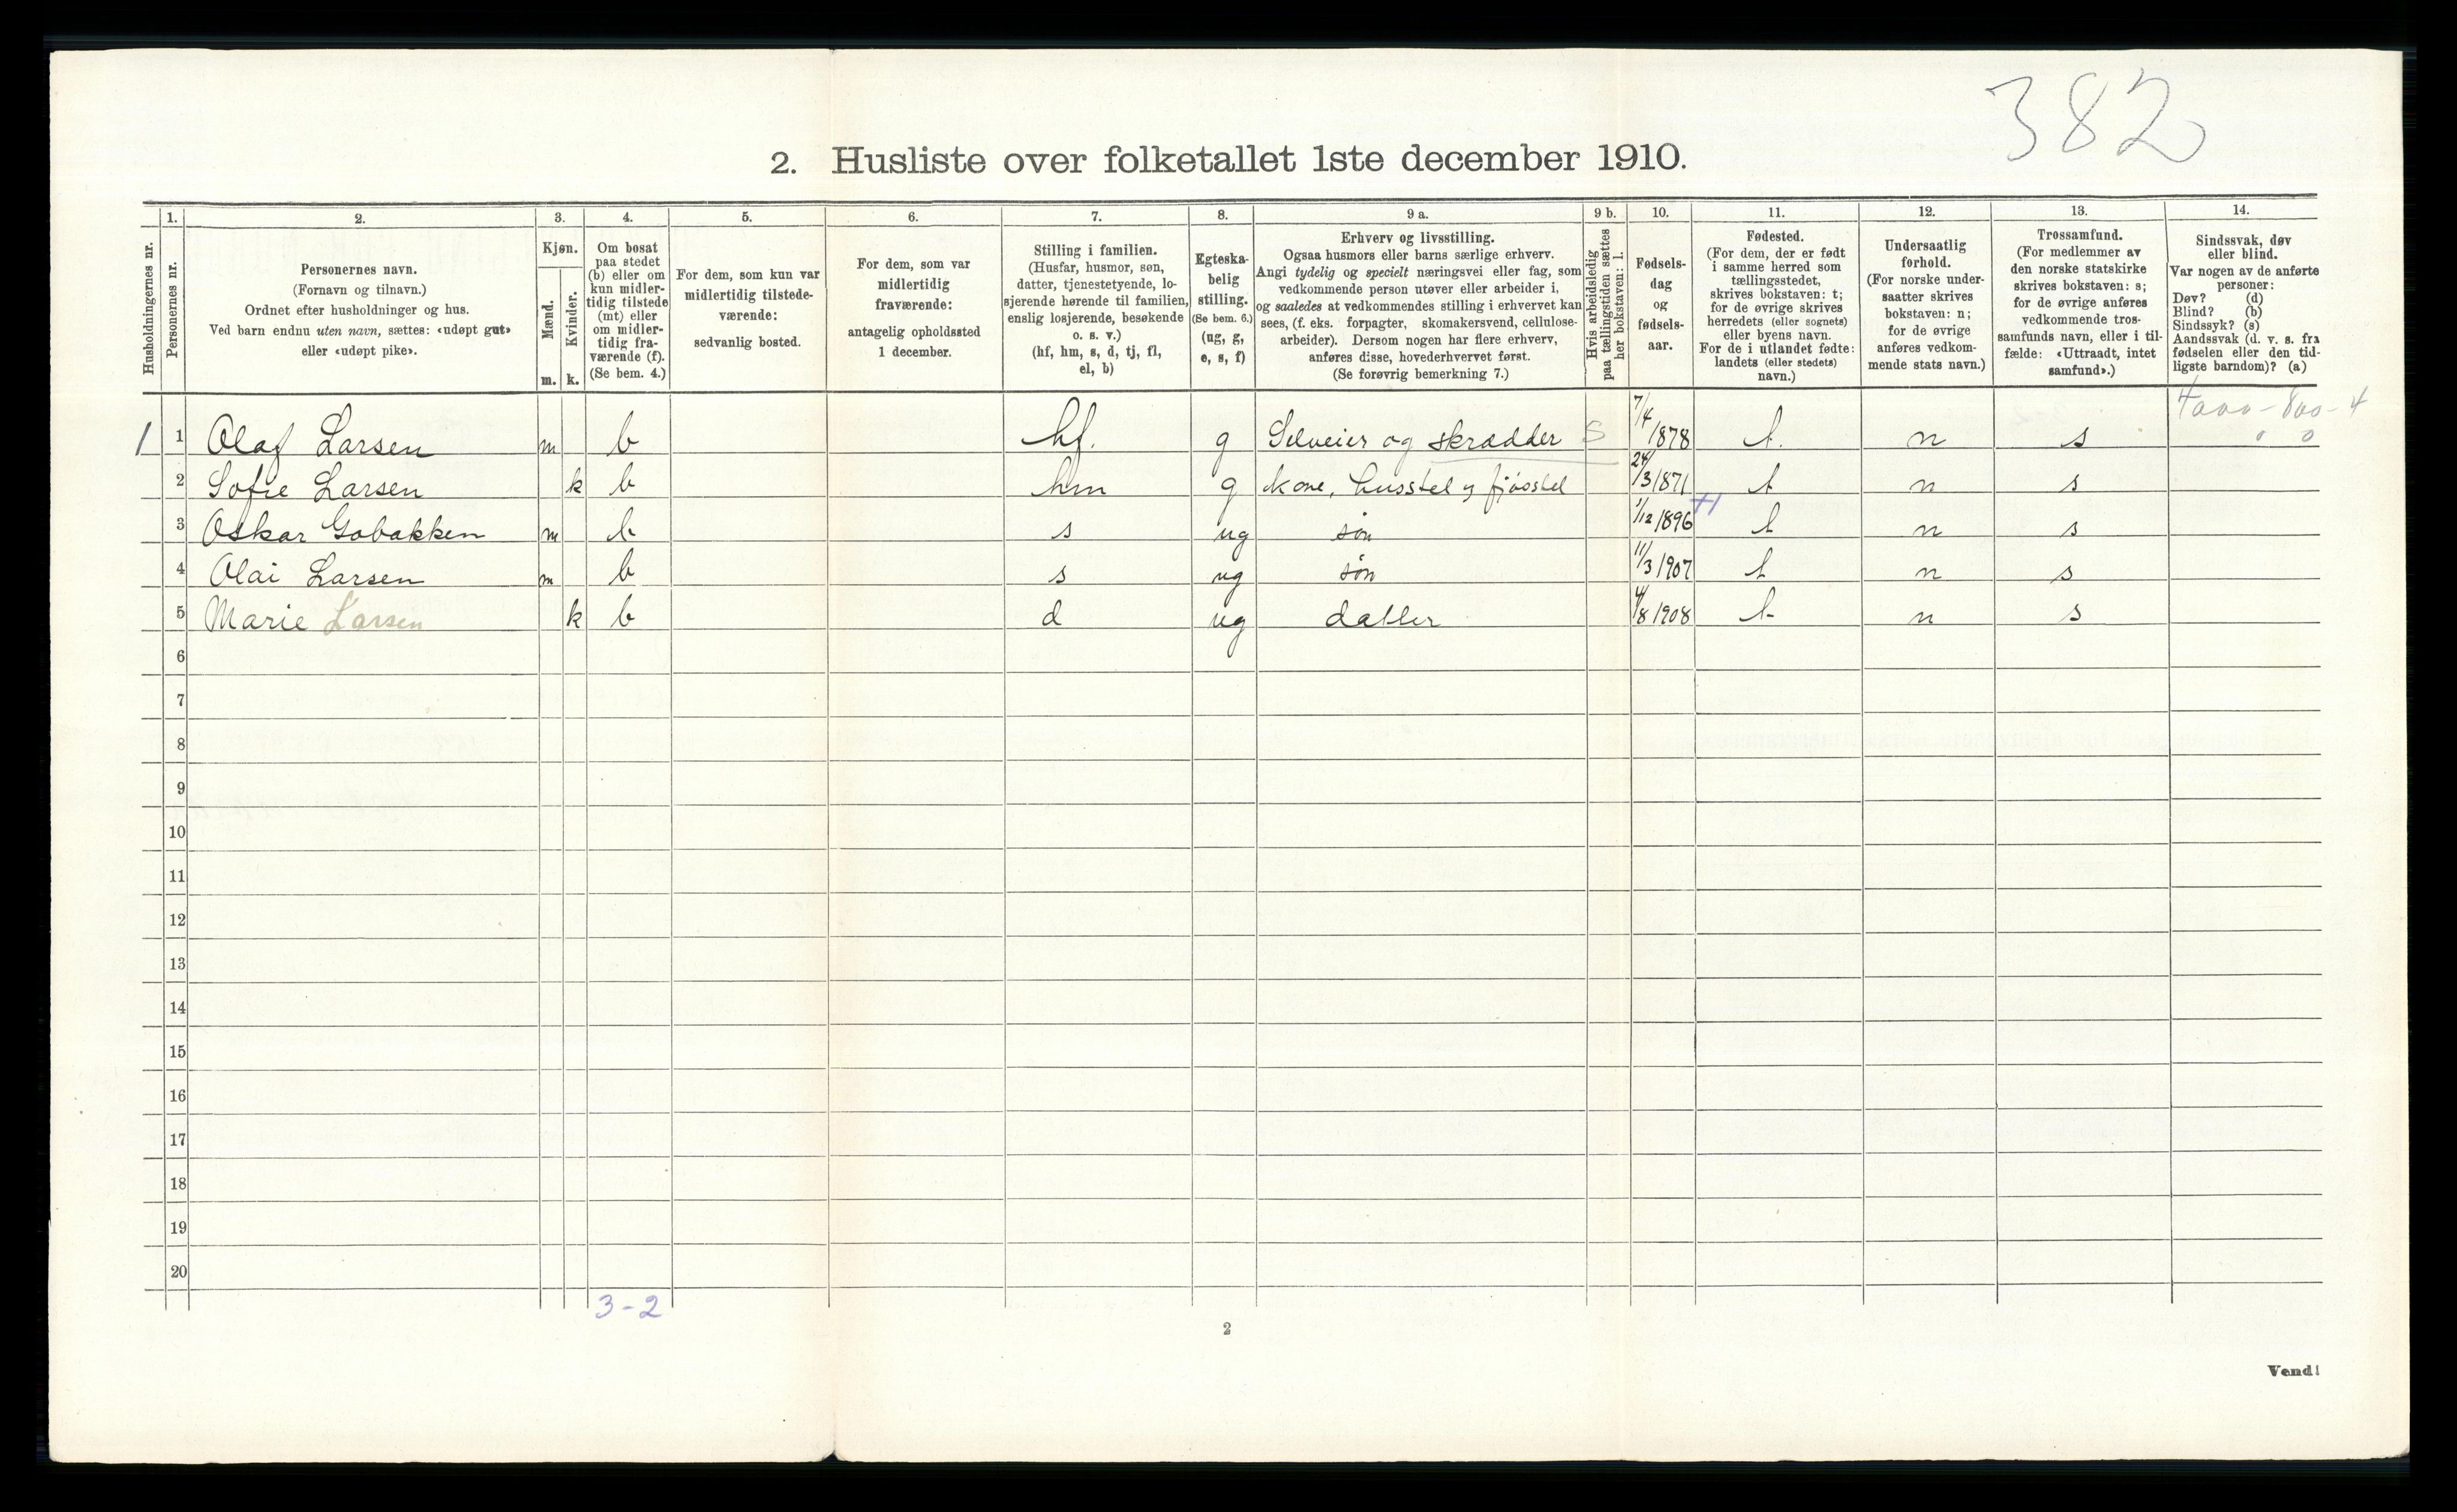 382
2. Husliste over folketallet 1ste december 1910.
Husholdningernes nr.
1. Personernes nr.
2. Personernes navn. (Fornavn og tilnavn.) Ordnet efter husholdninger og hus. Ved barn endnu uten navn, sættes: «udøpt gut» eller «udøpt pike».
3. Kjøn. Mænd. m. Kvinder. k.
4. Om bosat paa stedet (b) eller om kun midlertidig tilstede (mt) eller om midlertidig fraværende (f). (Se bem. 4.)
5. For dem, som kun var midlertidig tilstedeværende: sedvanlig bosted.
6. For dem, som var midlertidig fraværende: antagelig opholdssted 1 december.
7. Stilling i familien. (Husfar, husmor, søn, datter, tjenestetyende, losjerende hørende til familien, enslig losjerende, besøkende o. s. v.) (hf, hm, s, d, tj, fl, el, b)
8. Egteskabelig stilling. (Se bem. 6.) (ug, g, e, s, f)
9 a. Erhverv og livsstilling. Ogsaa husmors eller barns særlige erhverv. Angi tydelig og specielt næringsvei eller fag, som vedkommende person utøver eller arbeider i, og saaledes at vedkommendes stilling i erhvervet kan sees, (f. eks. forpagter, skomakersvend, cellulosearbeider). Dersom nogen har flere erhverv, anføres disse, hovederhvervet først. (Se forøvrig bemerkning 7.)
9 b. Hvis arbeidsledig paa tællingstiden sættes her bokstaven: l.
10. Fødselsdag og fødselsaar.
11. Fødested. (For dem, der er født i samme herred som tællingsstedet, skrives bokstaven: t; for de øvrige skrives herredets (eller sognets) eller byens navn. For de i utlandet fødte: landets (eller stedets) navn.)
12. Undersaatlig forhold. (For norske undersaatter skrives bokstaven: n; for de øvrige anføres vedkommende stats navn.)
13. Trossamfund. (For medlemmer av den norske statskirke skrives bokstaven: s; for de øvrige anføres vedkommende trossamfunds navn, eller i tilfælde: «Uttraadt, intet samfund».)
14. Sindssvak, døv eller blind. Var nogen av de anførte personer: Døv? (d) Blind? (b) Sindssyk? (s) Aandssvak (d. v. s. fra fødselen eller den tidligste barndom)? (a)
4000 - 800 - 4
0 0
1 1 Olaf Larsen m b hf. g Selveier og skrædder S 7/4 1878 t. n s
2 Sofie Larsen k b hm g kone, husstel og fjösstel 24/3 1871 t n s
3 Oskar Gobakken m b s ug sön 1/12 1896 t n s
4 Olai Larsen m b s ug sön 11/3 1907 t n s
5 Marie Larsen k b d ug datter 4/8 1908 t n s
6
7
8
9
10
11
12
13
14
15
16
17
18
19
20
3 - 2
2
Vend!